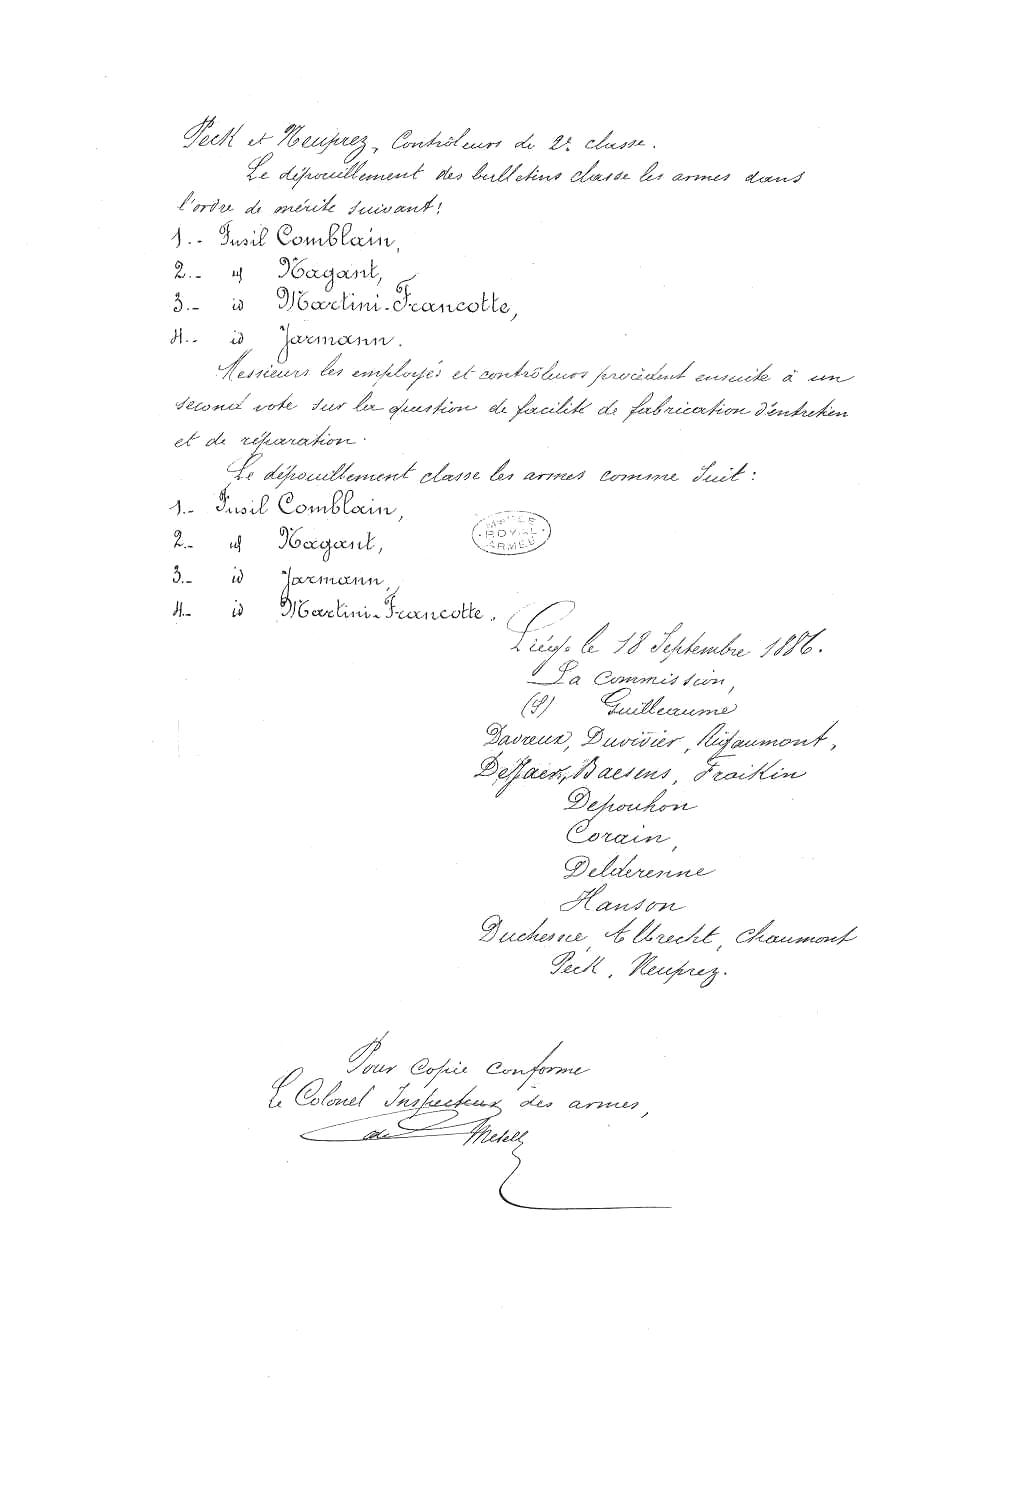 Peck et Neuprez, Contrôleurs de 2e classe.
Le dépouillement des bulletins classe les armes dans
l'ordre de mérite suivant:
1.- Fusil Comblain,
2.- id Nagant,
3.- id Martini-Francotte,
4.- id Jarmann.
Messieurs les employés et contrôleurs procèdent ensuite à un
second vote sur la question de facilité de fabrication d'entretien
et de réparation.
Le dépouillement classe les armes comme suit:
1.- Fusil Comblain,
2.- id Nagant,
3.- id Jarmann,
4.- id Martini-Francotte.
MUSEE
ROYAL
ARMEE
Liége le 18 Septembre 1886.
La Commission,
(S) Guilleaume
Davreux, Duvivier, Rigaumont,
Baesens, Fraikin
Depouhon
Corain,
Delderenne
Hanson
Duchesne, Albrecht, Chaumont
Peck, Neuprez.
Pour Copie conforme
Le Colonel Inspecteur des armes,
de